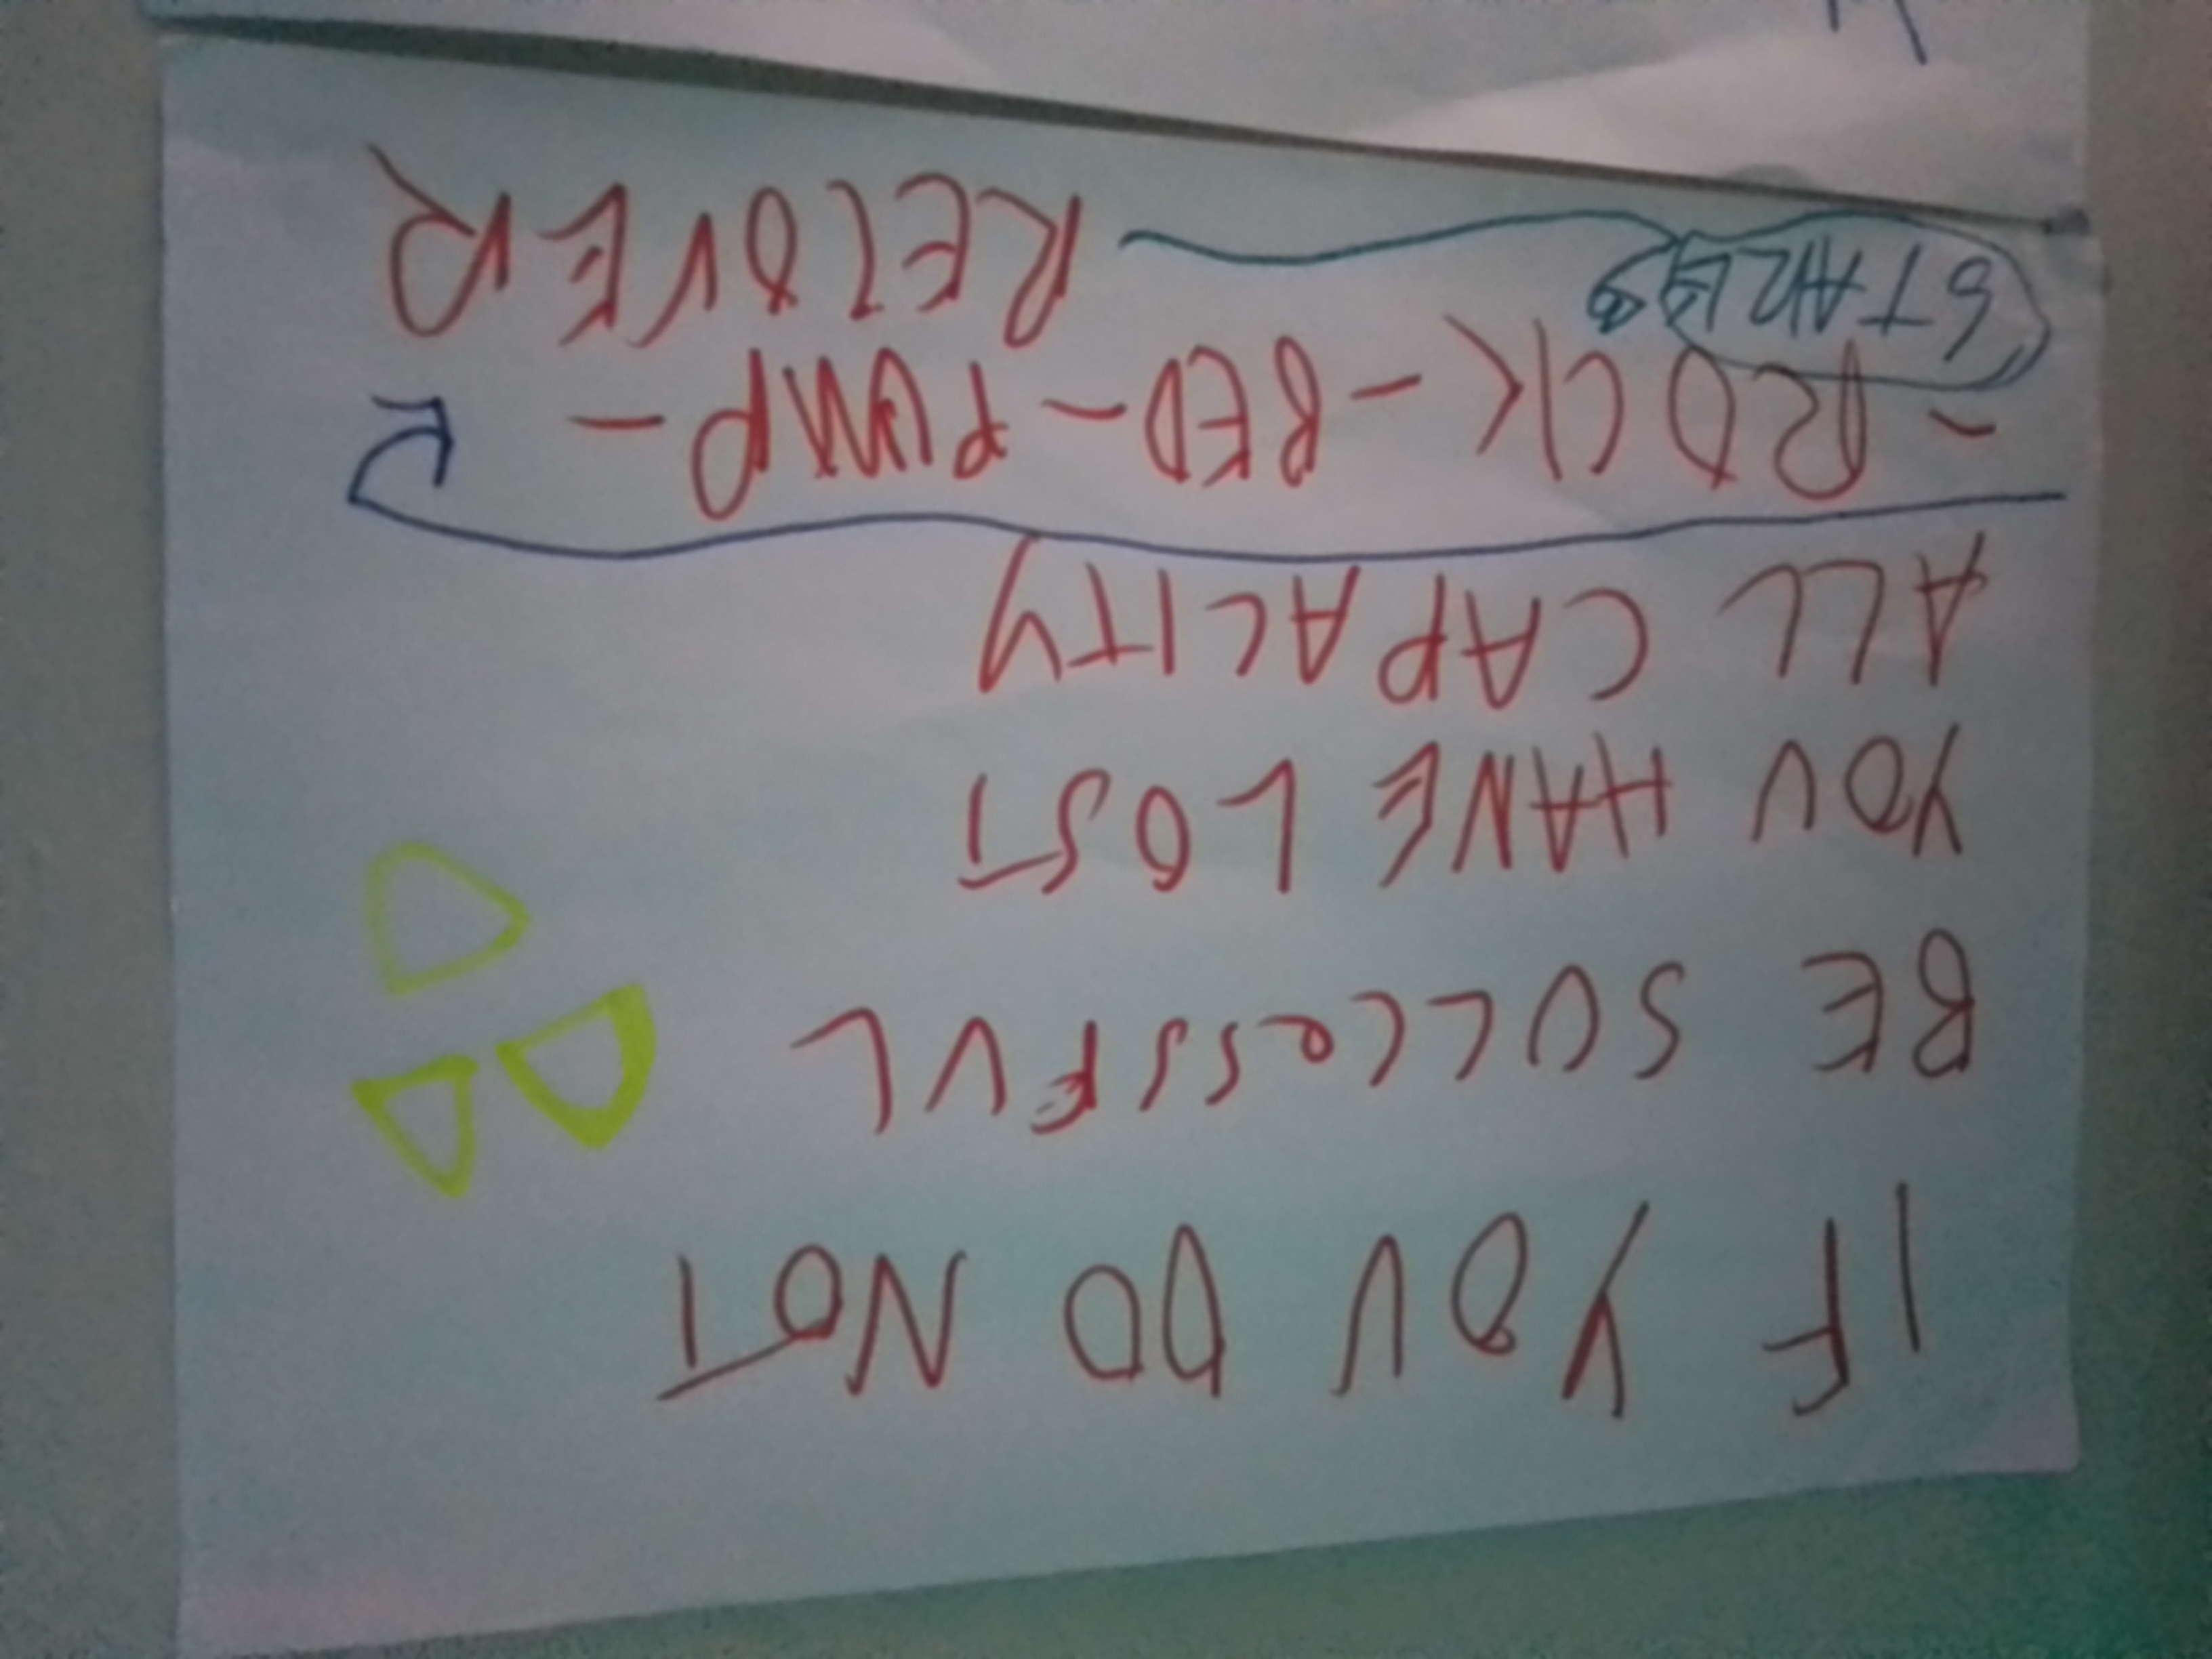 IF YOU DO NOT
BE SUCCESSFUL
YOU HAVE LOST
ALL CAPACITY
- ROCK - BED - PUMP -
RECOVER